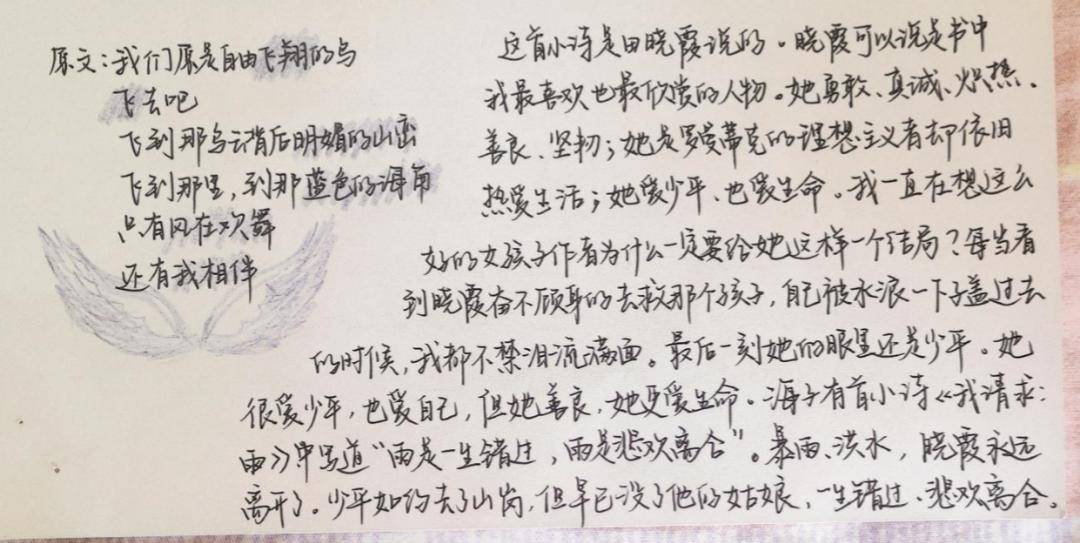 原文:我们原是自由飞翔的鸟
飞去吧
飞到那乌云背后明媚的山峦
飞到那里,到那蓝色的海角
只有风在欢舞
还有我相伴
这首小诗是田晓霞说的。晓霞可以说是书中
我最喜欢也最欣赏的人物。她勇敢、真诚、炽热、
善良、坚韧;她是罗曼蒂克的理想主义者却依旧
热爱生活;她爱少平、也爱生命。我一直在想这么
好的女孩子作者为什么一定要给她这样一个结局?每当看
到晓霞奋不顾身的去救那个孩子,自己被水浪一下子盖过去
的时候,我都不禁泪流满面。最后一刻她的眼里还是少平。她
很爱少平,也爱自己,但她善良,她更爱生命。海子有首小诗《我请求:
雨》中写道“雨是一生错过,雨是悲欢离合”。暴雨、洪水,晓霞永远
离开了。少平如约去了山岗,但早已没了他的姑娘,一生错过、悲欢离合。